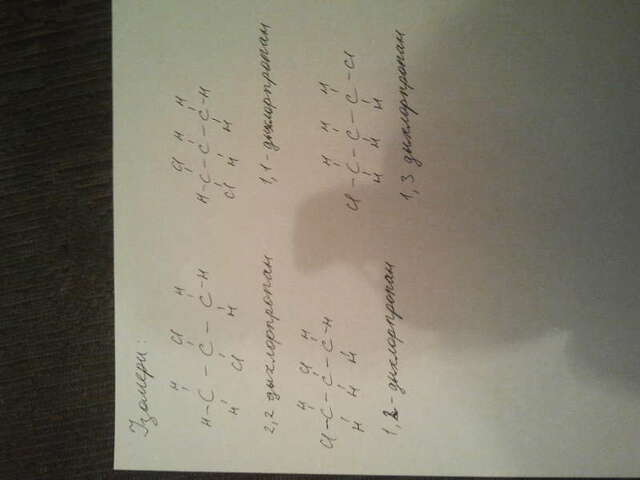 Ізомери:
H Cl H
H-C-C-C-H
H Cl H
2,2 дихлорпропан
Cl H H
H-C-C-C-H
Cl H H
1,1-дихлорпропан
H Cl H
Cl-C-C-C-H
H H H
1,2-дихлорпропан
H H H
Cl-C-C-C-Cl
H H H
1,3 дихлорпропан